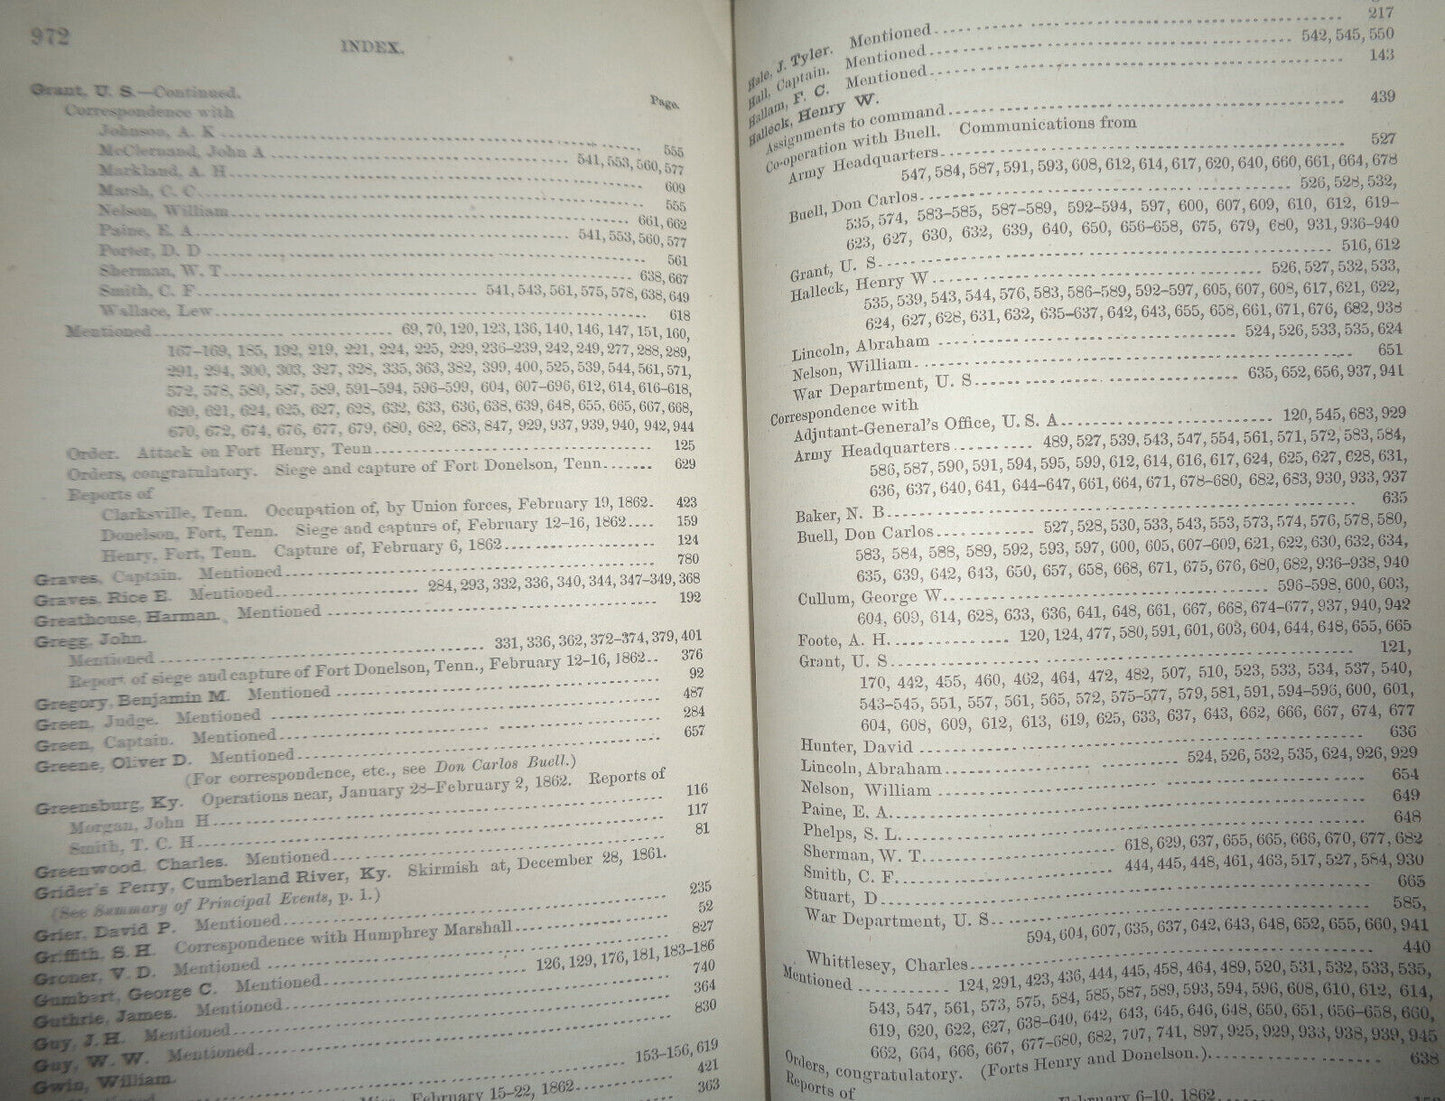 972
INDEX.
Grant, U. S.—Continued.
Page.
Correspondence with
Johnson, A. K ........ 555
McClernand, John A ........ 541, 553, 560, 577
Markland, A. H ........ 609
Marsh, C. C ........ 555
Nelson, William ........ 661, 662
Paine, E. A ........ 541, 553, 560, 577
Porter, D. D ........ 561
Sherman, W. T ........ 638, 667
Smith, C. F ........ 541, 543, 561, 575, 578, 638, 649
Wallace, Lew ........ 618
Mentioned ........ 69, 70, 120, 123, 136, 140, 146, 147, 151, 160,
167–169, 185, 192, 219, 221, 224, 225, 229, 236–239, 242, 249, 277, 288, 289,
291, 294, 300, 303, 327, 328, 335, 363, 382, 399, 400, 525, 539, 544, 561, 571,
572, 578, 580, 587, 589, 591–594, 596–599, 604, 607–696, 612, 614, 616–618,
620, 621, 624, 625, 627, 628, 632, 633, 636, 638, 639, 648, 655, 665, 667, 668,
670, 672, 674, 676, 677, 679, 680, 682, 683, 847, 929, 937, 939, 940, 942, 944
Order. Attack on Fort Henry, Tenn ........ 125
Orders, congratulatory. Siege and capture of Fort Donelson, Tenn ........ 629
Reports of
Clarksville, Tenn. Occupation of, by Union forces, February 19, 1862. 423
Donelson, Fort, Tenn. Siege and capture of, February 12–16, 1862 .... 159
Henry, Fort, Tenn. Capture of, February 6, 1862 ........ 124
Graves, Captain. Mentioned ........ 780
Graves, Rice E. Mentioned ........ 284, 293, 332, 336, 340, 344, 347–349, 368
Greathouse, Harman. Mentioned ........ 192
Gregg, John.
Mentioned ........ 331, 336, 362, 372–374, 379, 401
Report of siege and capture of Fort Donelson, Tenn., February 12–16, 1862.. 376
Gregory, Benjamin M. Mentioned ........ 92
Green, Judge. Mentioned ........ 487
Green, Captain. Mentioned ........ 284
Greene, Oliver D. Mentioned ........ 657
(For correspondence, etc., see Don Carlos Buell.)
Greensburg, Ky. Operations near, January 28–February 2, 1862. Reports of
Morgan, John H ........ 116
Smith, T. C. H ........ 117
Greenwood, Charles. Mentioned ........ 81
Grider's Ferry, Cumberland River, Ky. Skirmish at, December 28, 1861.
(See Summary of Principal Events, p. 1.)
Grier, David P. Mentioned ........ 235
Griffith, S. H. Correspondence with Humphrey Marshall ........ 52
Groner, V. D. Mentioned ........ 827
Gumbart, George C. Mentioned ........ 126, 129, 176, 181, 183–186
Guthrie, James. Mentioned ........ 740
Guy, J. H. Mentioned ........ 364
Guy, W. W. Mentioned ........ 830
Gwin, William.
153–156, 619
February 15–22, 1862 ........ 421
363
Hale, J. Tyler. Mentioned ........ 217
Hall, Captain. Mentioned ........ 542, 545, 550
Hallam, F. C. Mentioned ........ 143
Halleck, Henry W.
Assignments to command ........ 439
Co-operation with Buell. Communications from
Army Headquarters ........ 527
547, 584, 587, 591, 593, 608, 612, 614, 617, 620, 640, 660, 661, 664, 678
Buell, Don Carlos ........ 526, 528, 532,
535, 574, 583–585, 587–589, 592–594, 597, 600, 607, 609, 610, 612, 619–
623, 627, 630, 632, 639, 640, 650, 656–658, 675, 679, 680, 931, 936–940
Grant, U. S ........ 516, 612
Halleck, Henry W ........ 526, 527, 532, 533,
535, 539, 543, 544, 576, 583, 586–589, 592–597, 605, 607, 608, 617, 621, 622,
624, 627, 628, 631, 632, 635–637, 642, 643, 655, 658, 661, 671, 676, 682, 938
Lincoln, Abraham ........ 524, 526, 533, 535, 624
Nelson, William ........ 651
War Department, U. S ........ 635, 652, 656, 937, 941
Correspondence with
Adjutant-General's Office, U. S. A ........ 120, 545, 683, 929
Army Headquarters ........ 489, 527, 539, 543, 547, 554, 561, 571, 572, 583, 584,
586, 587, 590, 591, 594, 595, 599, 612, 614, 616, 617, 624, 625, 627, 628, 631,
636, 637, 640, 641, 644–647, 661, 664, 671, 678–680, 682, 683, 930, 933, 937
Baker, N. B ........ 635
Buell, Don Carlos ........ 527, 528, 530, 533, 543, 553, 573, 574, 576, 578, 580,
583, 584, 588, 589, 592, 593, 597, 600, 605, 607–609, 621, 622, 630, 632, 634,
635, 639, 642, 643, 650, 657, 658, 668, 671, 675, 676, 680, 682, 936–938, 940
Cullum, George W ........ 596–598, 600, 603,
604, 609, 614, 628, 633, 636, 641, 648, 661, 667, 668, 674–677, 937, 940, 942
Foote, A. H ........ 120, 124, 477, 580, 591, 601, 603, 604, 644, 648, 655, 665
Grant, U. S ........ 121,
170, 442, 455, 460, 462, 464, 472, 482, 507, 510, 523, 533, 534, 537, 540,
543–545, 551, 557, 561, 565, 572, 575–577, 579, 581, 591, 594–596, 600, 601,
604, 608, 609, 612, 613, 619, 625, 633, 637, 643, 662, 666, 667, 674, 677
Hunter, David ........ 636
Lincoln, Abraham ........ 524, 526, 532, 535, 624, 926, 929
Nelson, William ........ 654
Paine, E. A ........ 649
Phelps, S. L ........ 648
Sherman, W. T ........ 618, 629, 637, 655, 665, 666, 670, 677, 682
Smith, C. F ........ 444, 445, 448, 461, 463, 517, 527, 584, 930
Stuart, D ........ 665
War Department, U. S ........ 585,
594, 604, 607, 635, 637, 642, 643, 648, 652, 655, 660, 941
Whittlesey, Charles ........ 440
Mentioned ........ 124, 291, 423, 436, 444, 445, 458, 464, 489, 520, 531, 532, 533, 535,
543, 547, 561, 573, 575, 584, 585, 587, 589, 593, 594, 596, 608, 610, 612, 614,
619, 620, 622, 627, 638–640, 642, 643, 645, 646, 648, 650, 651, 656–658, 660,
662, 664, 666, 667, 677–680, 682, 707, 741, 897, 925, 929, 933, 938, 939, 945
Orders, congratulatory. (Forts Henry and Donelson.) ........ 638
Reports of
February 6–10, 1862